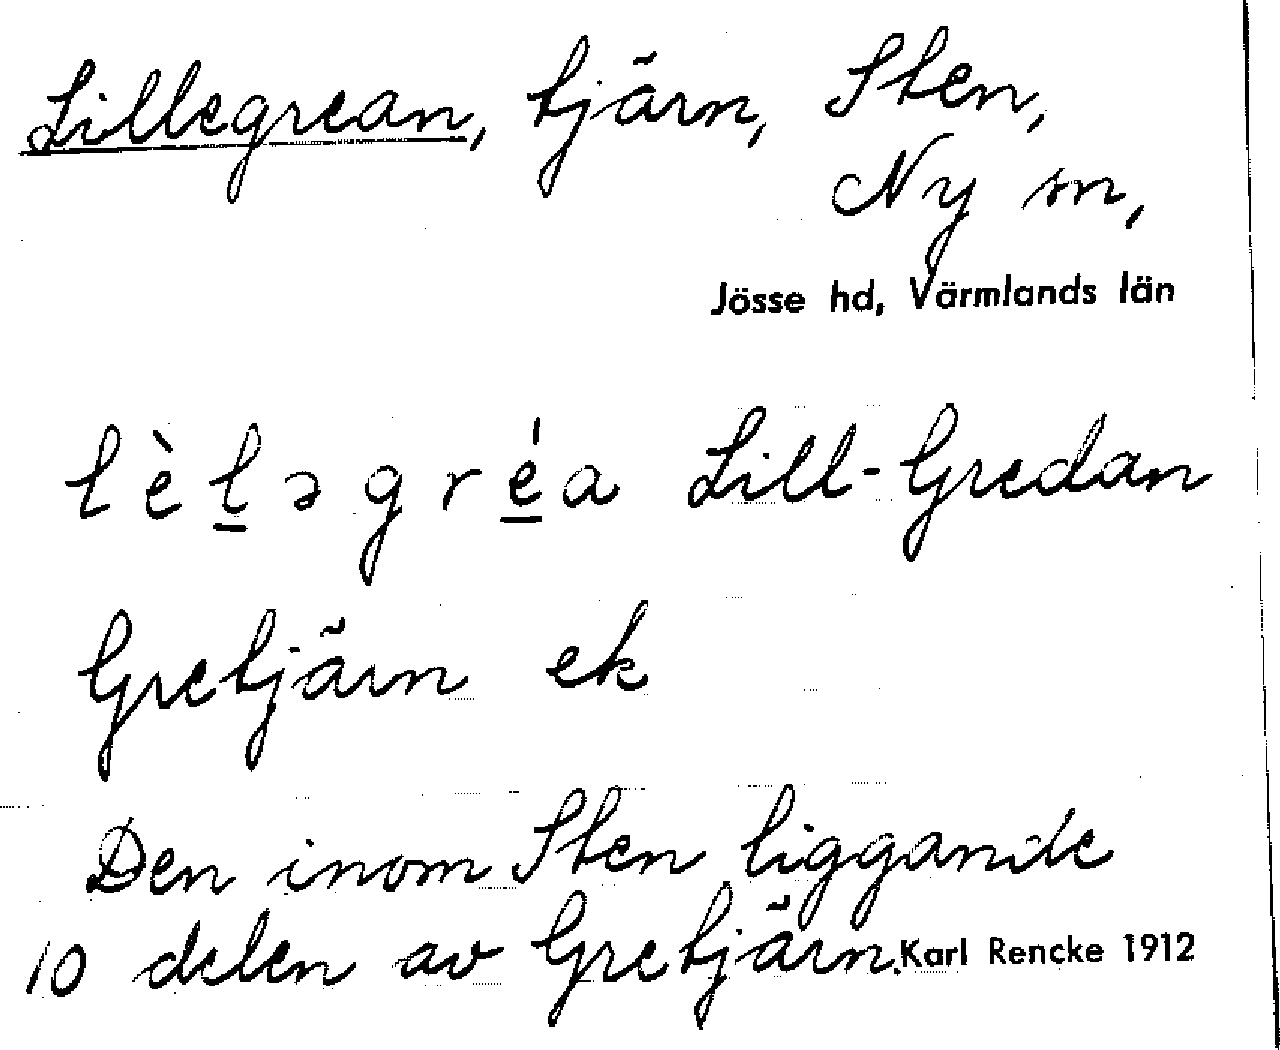 Lillegrean, tjärn, Sten,
Ny sn,
Jösse hd, Värmlands län
lèḻəgré̱a Lill-Gredan
Gretjärn ek
Den inom Sten liggande
10 delen av Gretjärn. Karl Rencke 1912